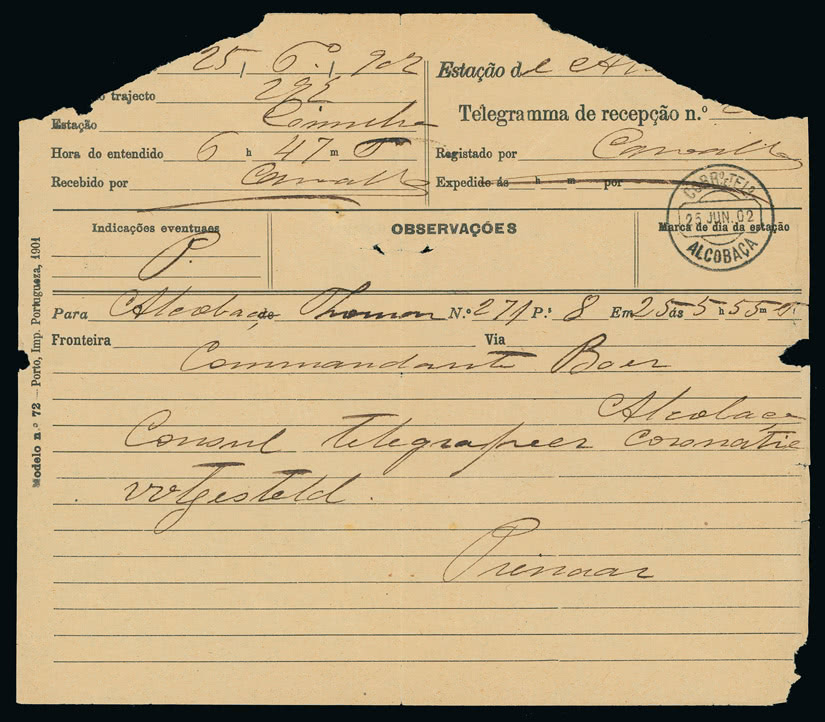 25 / 6º / 902
Estação de
o trajecto 292
Telegramma de recepção n.º
Estação Coimbra
Hora do entendido 6 h 47 m T
Registado por Carvalho
Recebido por Carvalho
Expedido ás h m por
CORRº E TELº
25 JUN. 02
ALCOBAÇA
Indicações eventuaes
OBSERVAÇÕES
Marca de dia da estação
P.
Para Alcobaça de Thomar N.º 271 P.s 8 Em 25 ás 5 h 55 m T
Fronteira
Via
Commandante Boer
Alcobaça
Consul telegrapeer coronatie
votgesteld.
Prinsaar
Modelo n.º 72 — Porto, Imp. Portugueza, 1901